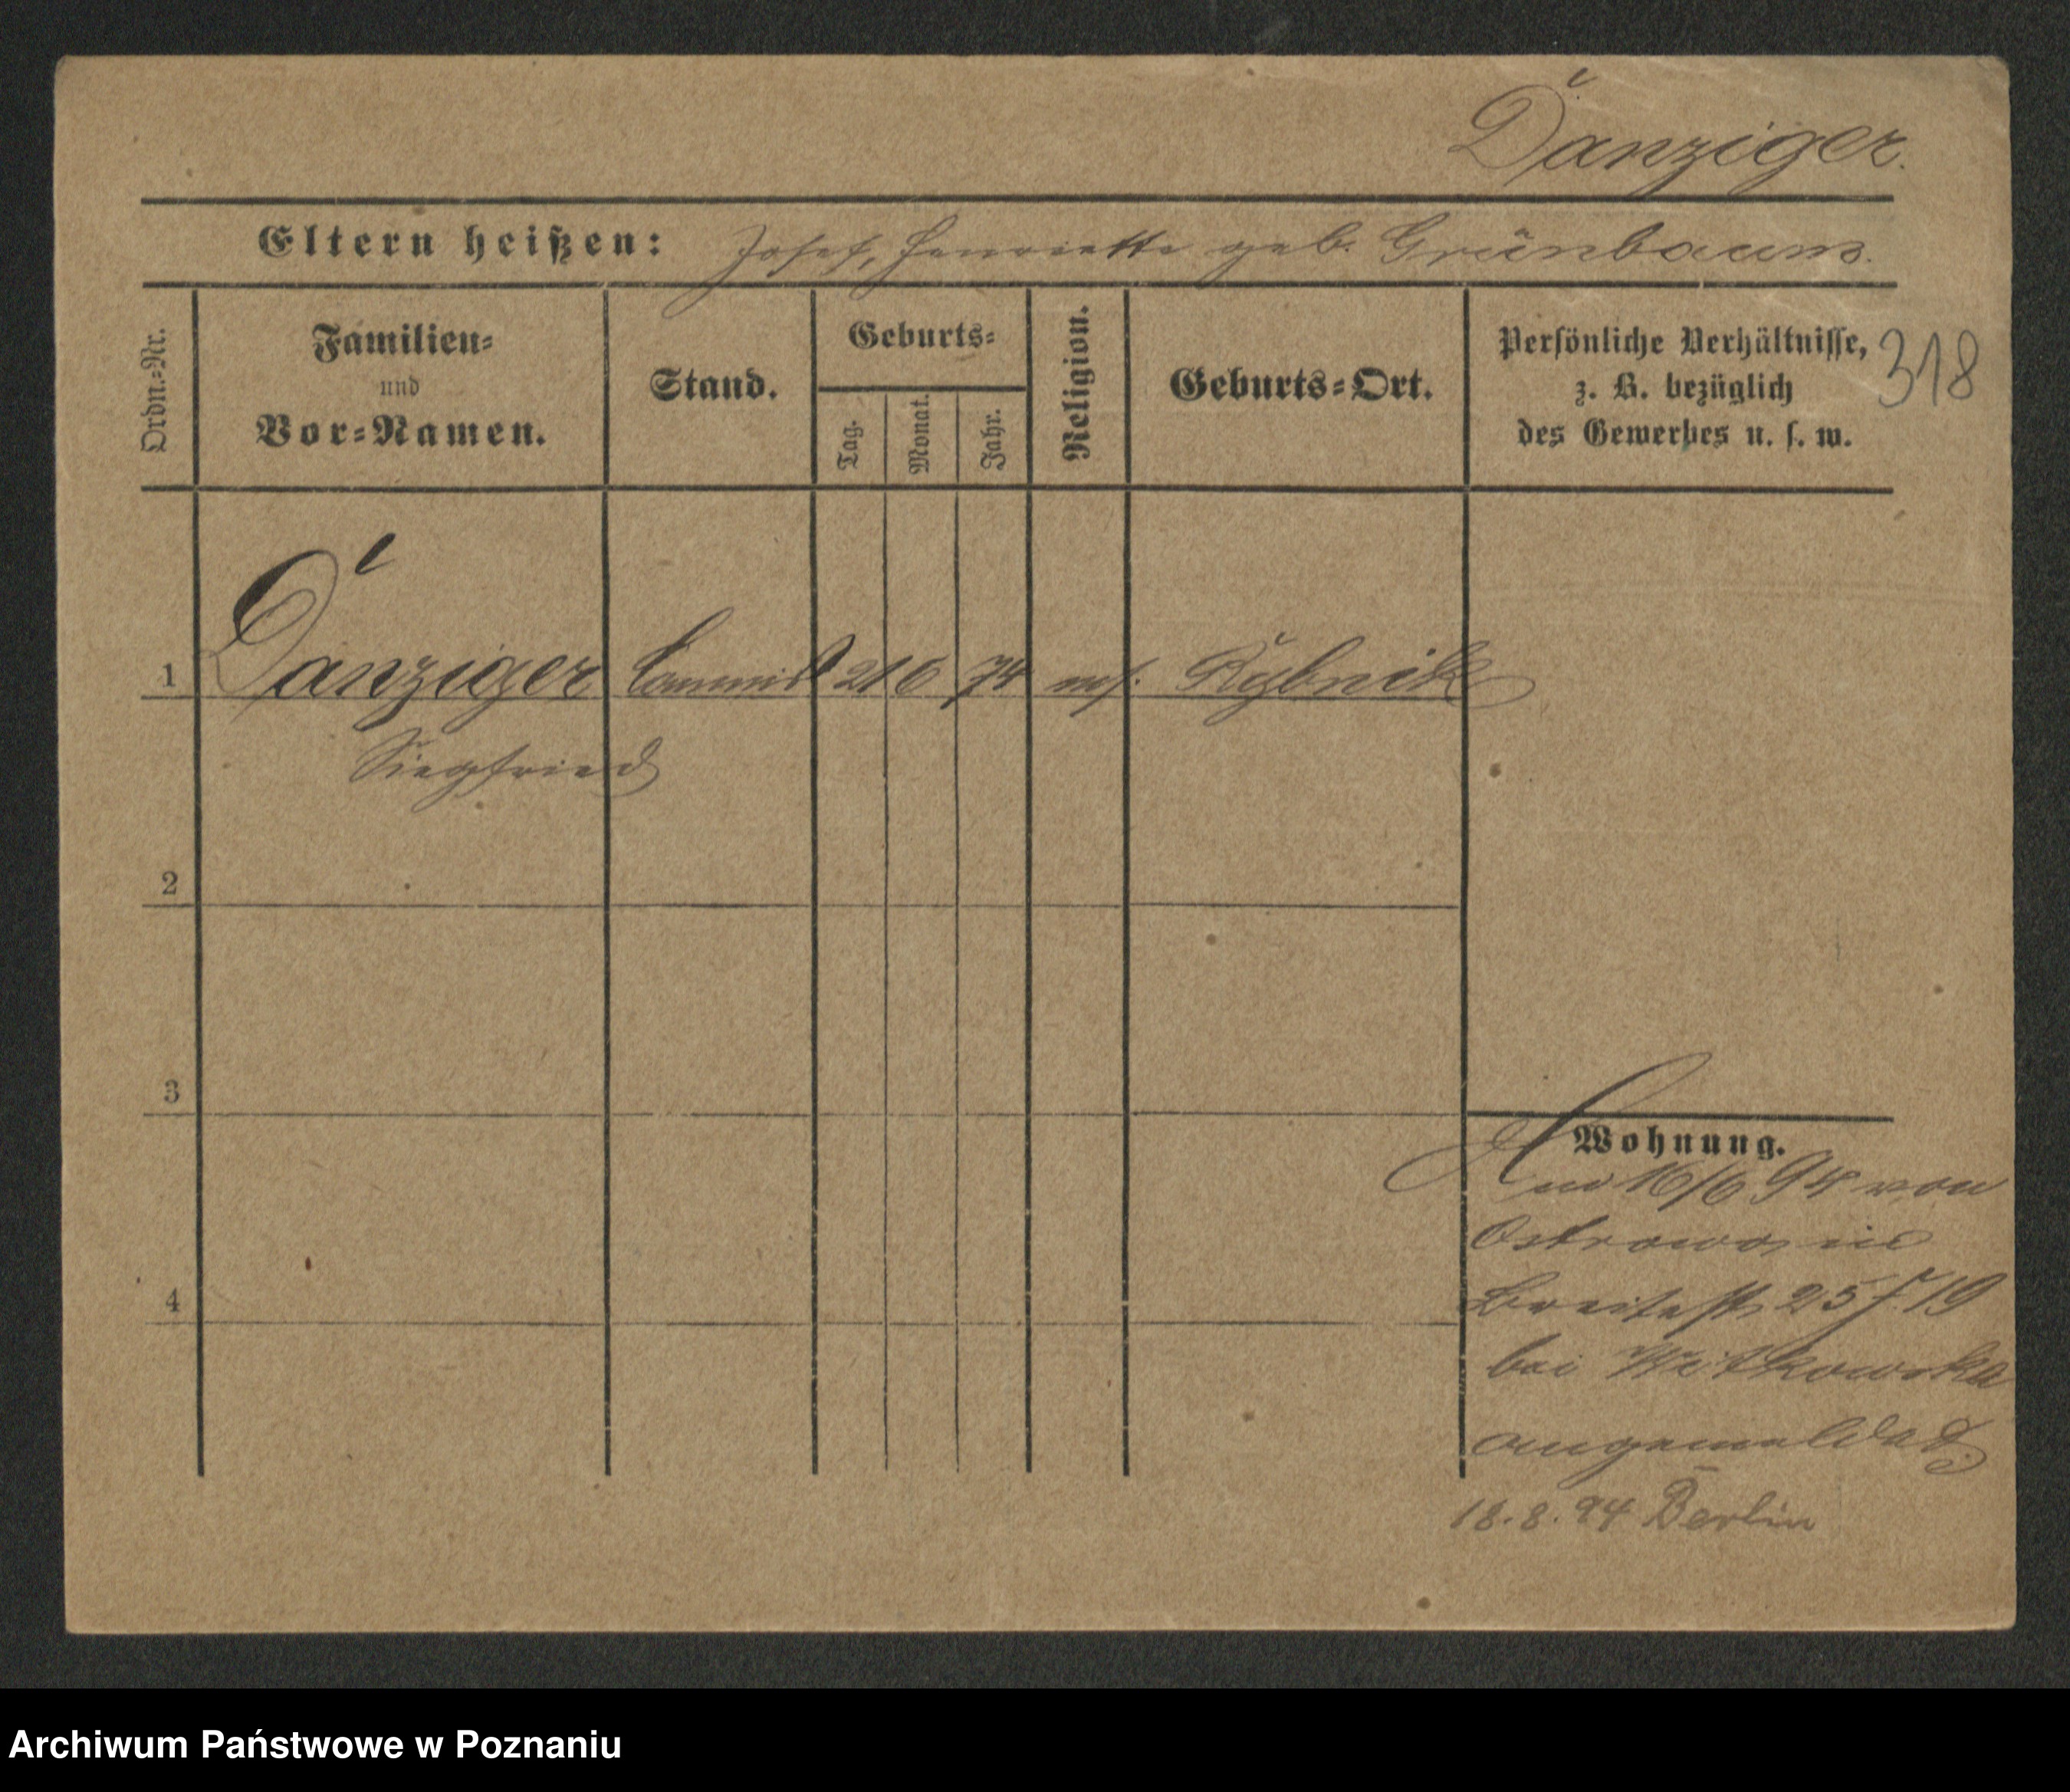 Danziger.
Eltern heißen: Josef, Henriette geb. Grünbaum.
Ordn.-Nr.
Familien-
und
Vor-Namen.
Stand.
Geburts-
Tag.
Monat.
Jahr.
Religion.
Geburts-Ort.
Persönliche Verhältnisse,
z. B. bezüglich
des Gewerbes u. s. w.
318
1 Danziger Commis 21 6 74 mos. Rybnik
Siegfried
2
3
4
Wohnung.
Am 16/6 94 von
Ostrowo in
Breitestr 25 f. 19
bei Witkowska
angemeldet
18.8.94 Berlin
Archiwum Państwowe w Poznaniu